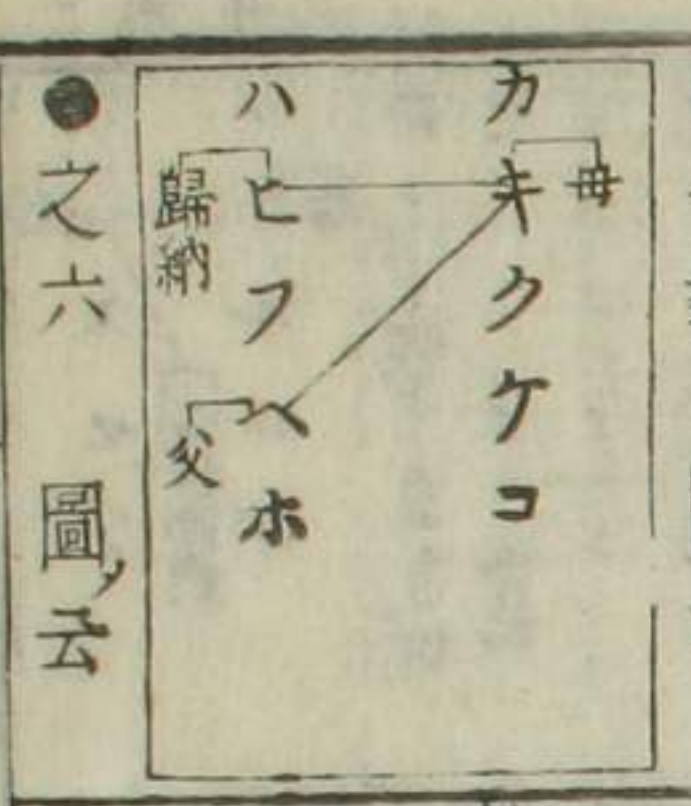 母
カキクケコ
ハヒフヘホ
歸納
父
●之六 圖ノ云